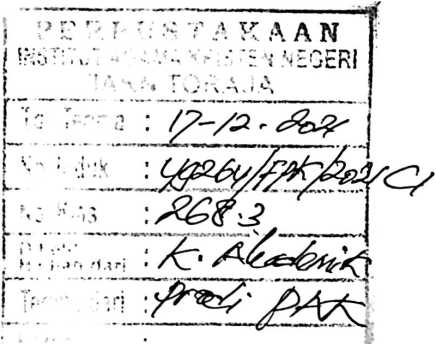 PERPUSTAKAAN
INSTITUT AGAMA KRISTEN NEGERI
IAKN TORAJA
Tgl. Terima : 17-12-2021
No. Induk : 49264/FPK/2021 C1
No. Klas : 268.3
: K. Akademik
Terima dari : Prodi PAK